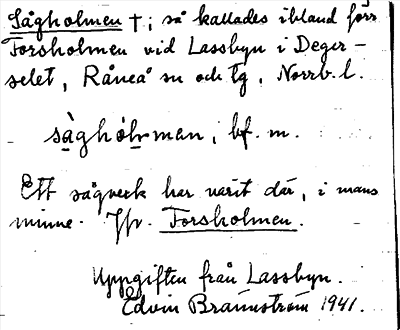 Sågholmen †; så kallades ibland förr
Forsholmen vid Lassbyn i Deger-
selet, Råneå sn och tg, Norrb. l.
sågholman, bf. m.
Ett sågverk har varit där, i mans
minne. Jfr. Forsholmen.
Uppgiften från Lassbyn.
Edvin Brännström 1941.